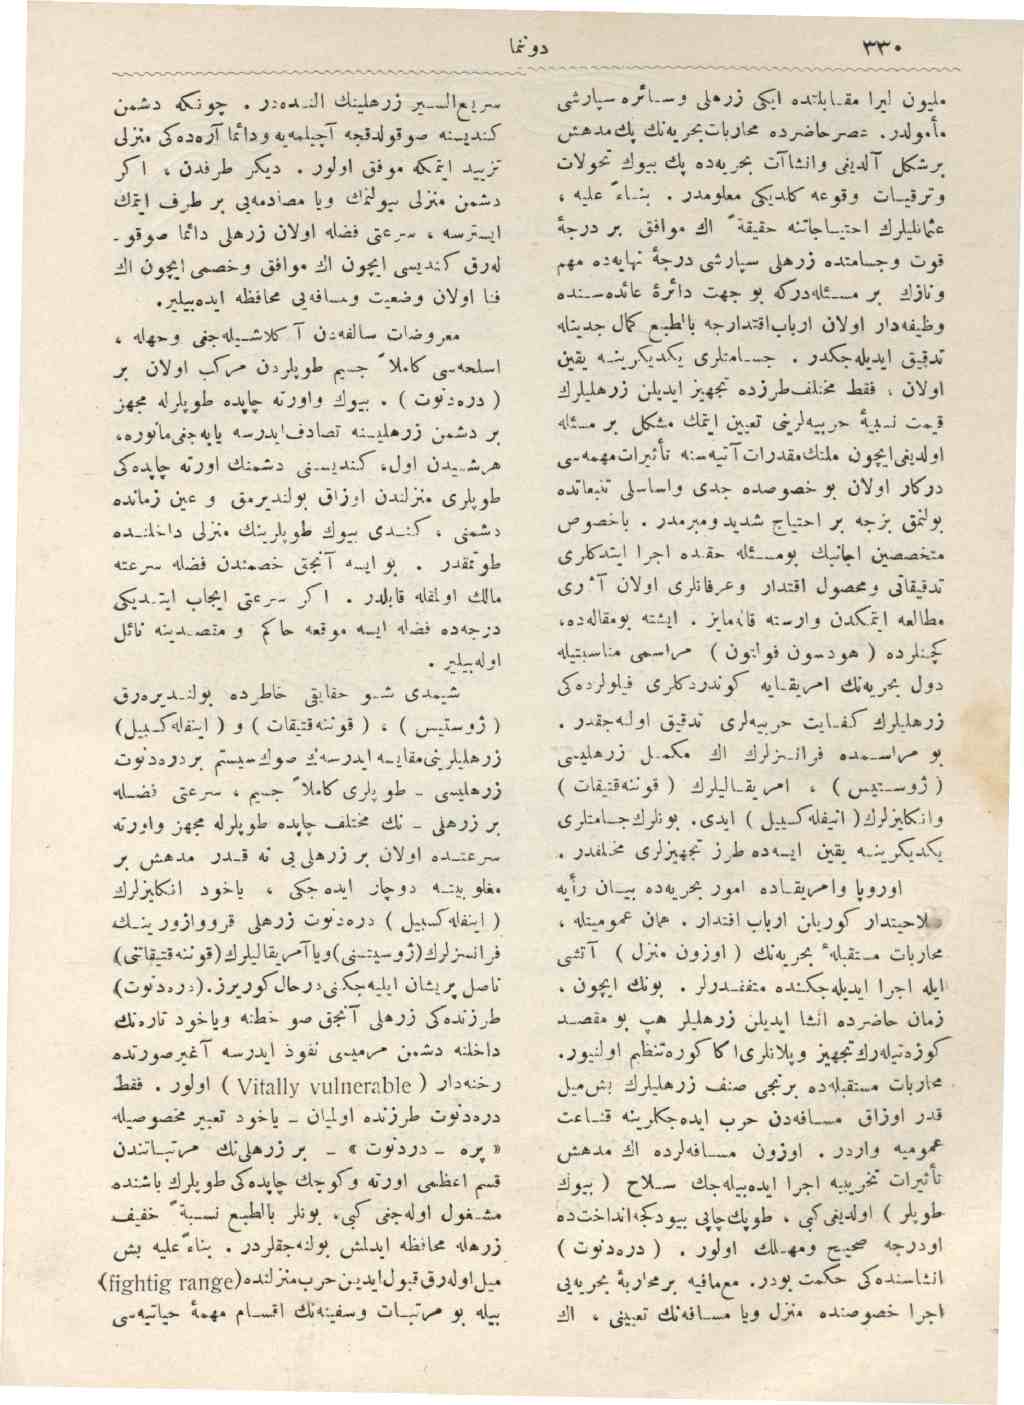 ٣٣٠
دوننما
مليون ليرا مقابلنده ايكى زرهلى وسائره سپارشى
مأمولدر. عصرحاضرده محاربات بحريه‌نك پك مدهش
برشكل آلديغى وانشاآت بحريه‌ده پك بيوك تحولات
وترقيات وقوعه كلديكى معلومدر . بناءً عليه ،
عثمانليلرك احتياجاتنه حقيقةً اك موافق بر درجۀ
قوت وجسامتده زرهلى سپارشى درجۀ نهايه‌ده مهم
ونازك بر مسئله‌دركه بو جهت دائرۀ عائده‌سنده
وظيفه‌دار اولان ارباب‌اقتدارجه بالطبع كمال جديتله
تدقيق ايديله‌جكدر . جسامتلرى يكديكرينه يقين
اولان ، فقط مختلف‌طرزده تجهيز ايديلن زرهليلرك
قيمت نسبيۀ حربيه‌لرينى تعيين ايتمك مشكل بر مسئله
اولديغى‌ايچون ملتك‌مقدرات‌آتيه‌سنه تأثيرات‌مهمه‌سى
دركار اولان بو خصوصده جدى واساسلى تتبعاتده
بولنمق بزجه بر احتياج شديد ومبرمدر . باخصوص
متخصصين اجانبك بومسئله حقنده اجرا ايتدكلرى
تدقيقاتى ومحصول اقتدار وعرفانلرى اولان آثارى
مطالعه ايتمكدن وارسته قالنه‌ماز . ايشته بومقاله‌ده،
كچنلرده ( هودسون فولتون ) مراسمى مناسبتيله
دول بحريه‌نك امريقايه كوندردكلرى فيلولرده‌كى
زرهليلرك كفايت حربيه‌لرى تدقيق اولنه‌جقدر .
بو مراسمده فرانسزلرك اك مكمل زرهليسى
( ژوستيس ) ، امريقاليلرك ( قوننه‌قتيقات )
وانكليزلرك( انيفله‌كسيبل ) ايدى. بونلرك‌جسامتلرى
يكديكرينه يقين ايسه‌ده طرز تجهيزلرى مختلفدر .
اوروپا وامريقاده امور بحريه‌ده بيان رأيه
صلاحيتدار كوريلن ارباب اقتدار . همان عموميتله ،
محاربات مستقبلهٔ بحريه‌نك ( اوزون منزل ) آتشى
ايله اجرا ايديله‌جكنده متفقدرلر . بونك ايچون ،
زمان حاضرده انشا ايديلن زرهليلر هپ بو مقصد
كوزه‌تيله‌رك‌تجهيز وپلانلرى‌اكا كوره‌تنظيم اولنيور.
محاربات مستقبله‌ده برنجى صنف زرهليلرك بش‌ميل
قدر اوزاق مسافه‌دن حرب ايده‌جكلرينه قناعت
عموميه واردر. اوزون مسافه‌لرده اك مدهش
تأثيرات تخريبيه اجرا ايده‌بيله‌جك سلاح ( بيوك
طوپلر ) اولديغى‌كبى ، طوپك‌چاپى بيودكجه‌انداخت‌ده
اودرجه صحيح ومهلك اولور . ( دره‌دنوت )
انشاسنده‌كى حكمت بودر. مع‌مافيه برمحاربۀ بحريه‌يى
اجرا خصوصنده منزل ويا مسافه‌نك تعيينى ، اك
سريع‌السير زرهلينك النده‌در . چونكه دشمن
كنديسنه صوقولدقجه آچيلمه‌يه ودائما آره‌ده‌كى منزلى
تزييد ايتمكه موفق اولور . ديكر طرفدن ، اكر
دشمن منزلى بيولتمك ويا مصادمه‌يى بر طرف ايتمك
ايسترسه ، سرعتى فضله اولان زرهلى دائما صوقو-
له‌رق كنديسى ايچون اك موافق وخصمى ايچون اك
فنا اولان وضعيت ومسافه‌يى محافظه ايده‌بيلير.
معروضات سالفه‌دن آكلاشيله‌جغى وجهله ،
اسلحه‌سى كاملاً جسيم طوپلردن مركب اولان بر
( دره‌دنوت ) . بيوك واورته چاپده طوپلرله مجهز
بر دشمن زرهليسنه تصادف‌ايدرسه ياپه‌جغى‌مانوره،
هرشيدن اول، كنديسنى دشمنك اورته چاپده‌كى
طوپلرى منزلندن اوزاق بولنديرمق و عين زمانده
دشمنى ، كندى بيوك طوپلرينك منزلى داخلنده
طوتمقدر . بو ايسه آنجق خصمندن فضله سرعته
مالك اولمقله قابلدر . اكر سرعتى ايجاب ايتديكى
درجه‌ده فضله ايسه موقعه حاكم و مقصدينه نائل
اوله‌بيلير .
شيمدى شو حقايقى خاطرده بولنديره‌رق
( ژوستيس ) ، ( قوننه‌قتيقات ) و ( اينفله‌كسيبل)
زرهليلرينى‌مقايسه ايدرسه‌ك صوك‌سيستم بردره‌دنوت
زرهليسى - طوپلرى كاملاً جسيم ، سرعتى فضله
بر زرهلى - نك مختلف چاپده طوپلرله مجهز واورته
سرعتده اولان بر زرهلى‌يى نه قدر مدهش بر
مغلوبيته دوچار ايده‌جكى ، ياخود انكليزلرك
( اينفله‌كسيبل ) دره‌دنوت زرهلى قرووازورينك
فرانسزلرك(ژوسيتسنى)وياآمريقاليلرك(قوننه‌قتيقاتنى)
ناصل پريشان ايليه‌جكنى‌درحال‌كوريرز.(دره‌دنوت)
طرزنده‌كى زرهلى آنجق صو خطنه وياخود تارەتك
داخلنه دشمن مرميسى نفوذ ايدرسه آغيرصورتده
رخنه‌دار ( Vitally vulnerable ) اولور . فقط
دره‌دنوت طرزنده اولميان - ياخود تعبير مخصوصيله
« پره - دردنوت » - بر زرهلى‌نك مرتباتندن
قسم اعظمى اورته وكوچك چاپده‌كى طوپلرك باشنده
مشغول اوله‌جغى كبى، بونلر بالطبع نسبةً خفيف
زرهله محافظه ايدلمش بولنه‌جقلردر . بناءًعليه بش
ميل‌اوله‌رق‌قبول‌ايديـن‌حرب‌منزلنده(fightig range)
بيله بو مرتبات وسفينه‌نك اقسام مهمۀ حياتيه‌سى